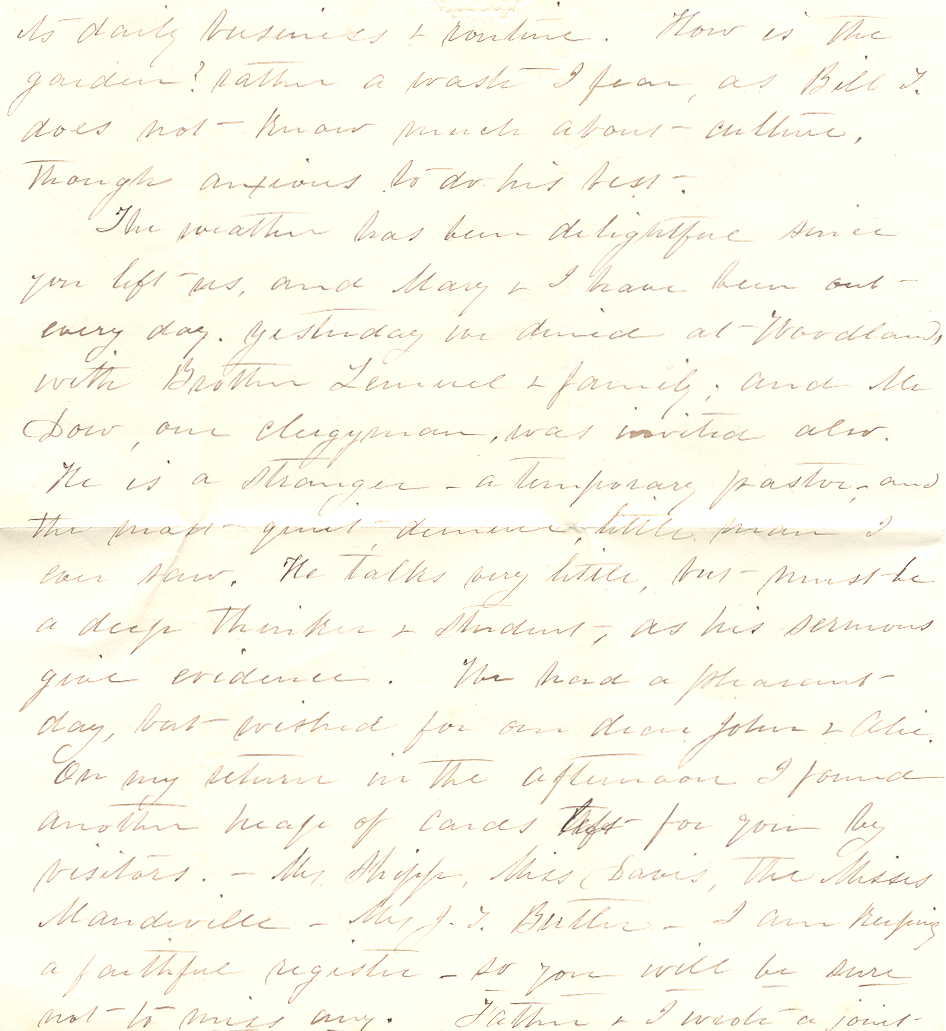 its daily business & routine. How is the
garden? rather a waste I fear, as Bill T.
does not know much about culture,
though anxious to do his best.
The weather has been delightful since
you left us, and Mary & I have been out
every day. Yesterday we dined at Woodlands
with Brother Lemuel & family; and Mr
Dow, our clergyman, was invited also.
He is a stranger - a temporary pastor, and
the most quiet, demure, little man I
ever saw. He talks very little, but must be
a deep thinker & student, as his sermons
give evidence. We had a pleasant
day, but wished for our dear John & Alie.
On my return in the afternoon I found
another heap of cards left for you by
visitors. - Mrs Shipp, Miss Davis, the Misses
Mandeville - Mrs J. T. Butler - I am keeping
a faithful register - so you will be sure
not to miss any. Father & I wrote a joint